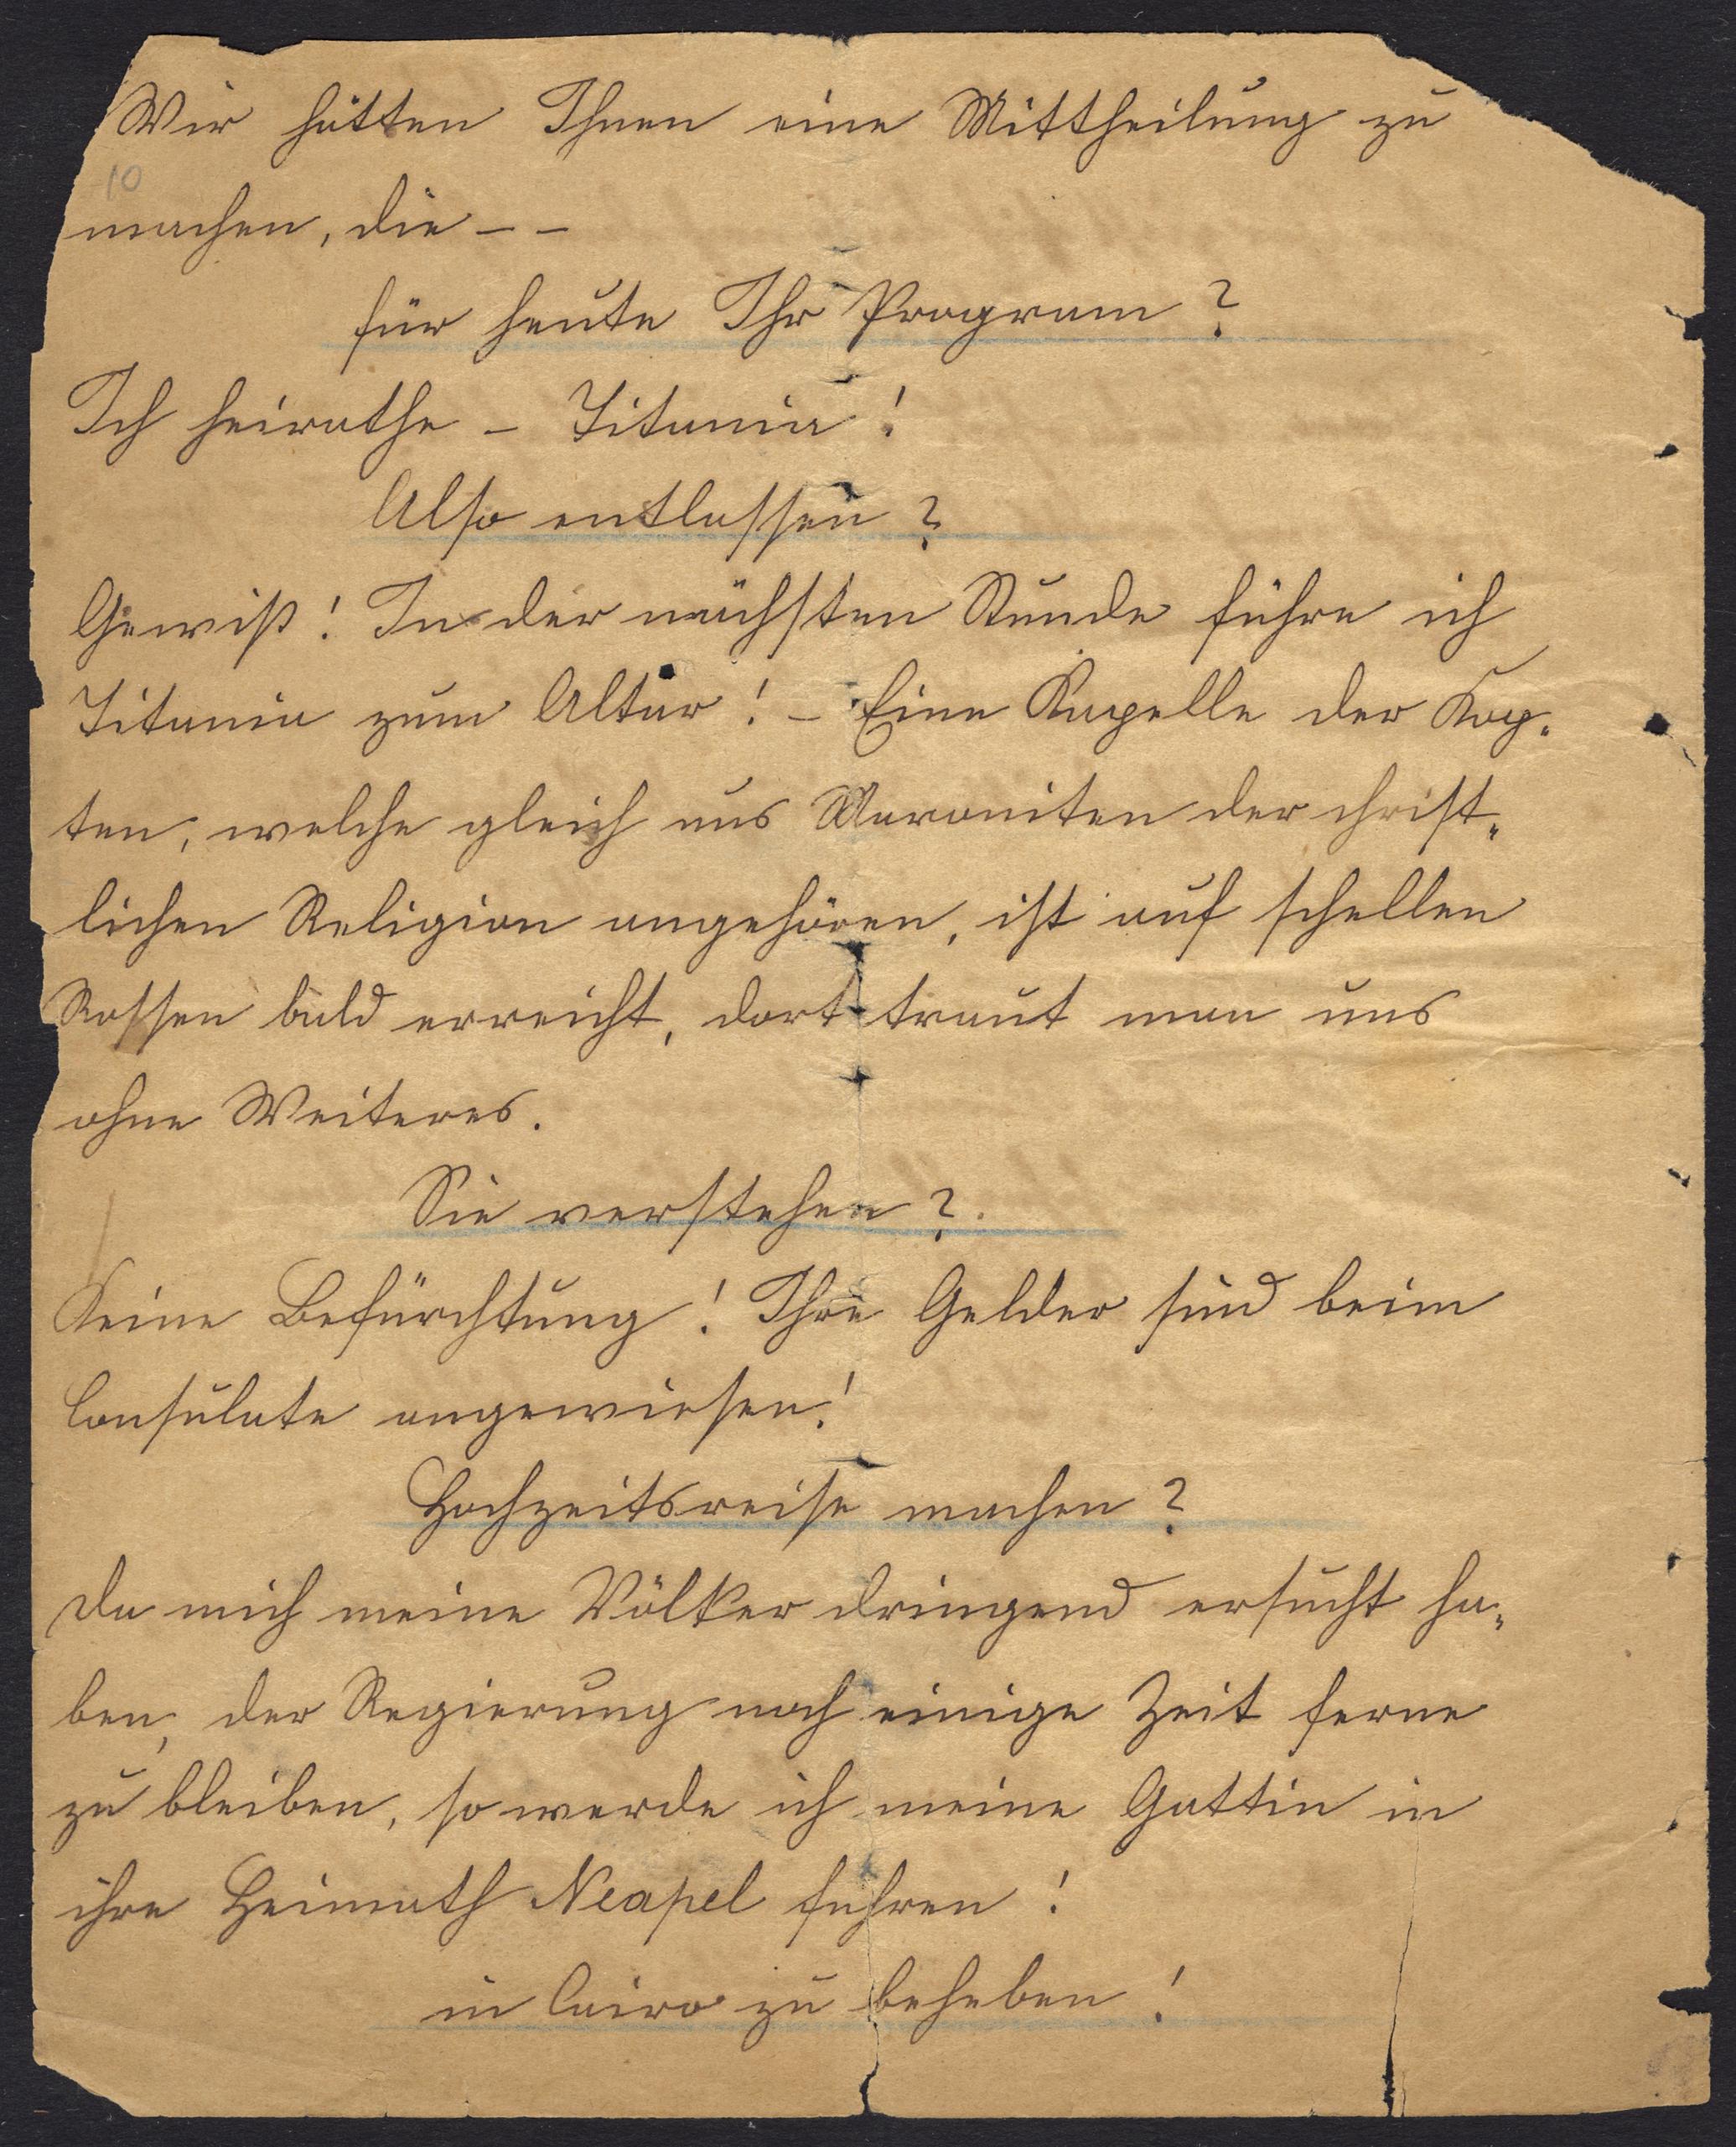 Wir hätten Ihnen eine Mittheilung zu
10
machen, die – –
für heute Ihr Program?
Ich heirathe – Titania!
Also entlassen?
Gewiß! In der nächsten Stunde führe ich
Titania zum Altar! – Eine Kapelle der Kop-
ten, welche gleich uns Maroniten der christ-
lichen Religion angehören, ist auf schellen
Rossen bald erreicht, dort traut man uns
ohne Weiteres.
Sie verstehen?
Keine Befürchtung! Ihre Gelder sind beim
Consulate angewiesen!
Hochzeitsreise machen?
Da mich meine Völker dringend ersucht ha-
ben, der Regierung noch einige Zeit ferne
zu bleiben, so werde ich meine Gattin in
ihre Heimath Neapel führen!
in Cairo zu beheben!